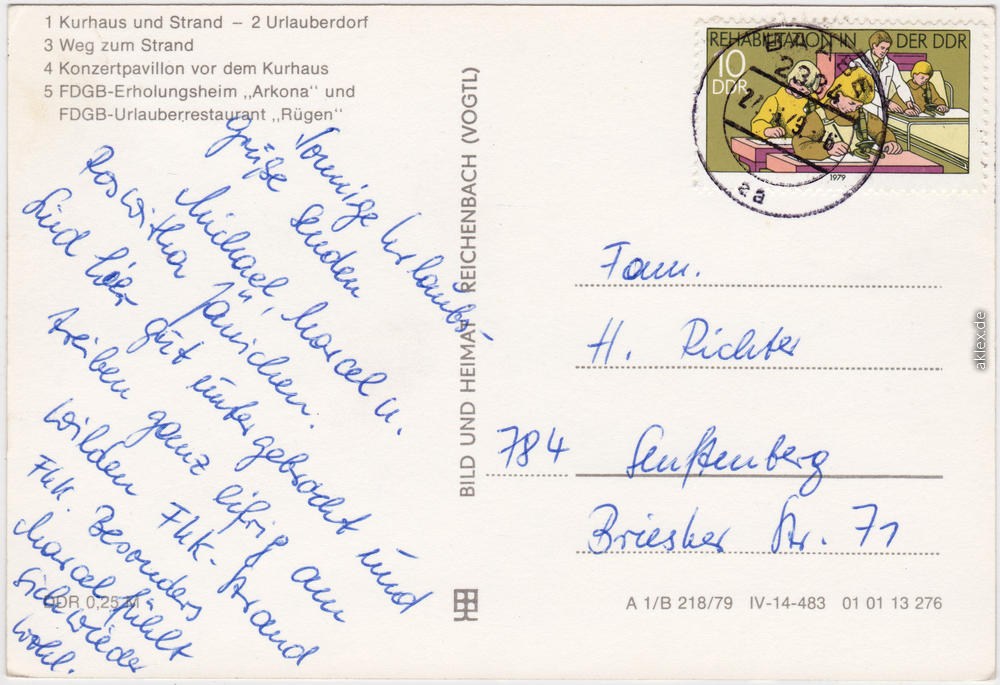 1 Kurhaus und Strand – 2 Urlauberdorf
3 Weg zum Strand
4 Konzertpavillon vor dem Kurhaus
5 FDGB-Erholungsheim „Arkona“ und
FDGB-Urlauberrestaurant „Rügen“
Sonnige Urlaubs-
grüße senden
Michael, Marcel u.
Roswitha Janichen.
Sind hier gut untergebracht und
treiben ganz eifrig am
wilden FKK-Strand
FKK. Besonders
Marcel fühlt
sich wieder
wohl.
DDR 0,25 M
BILD UND HEIMAT REICHENBACH (VOGTL)
REHABILITATION IN DER DDR
10
DDR
1979
2384
aa
Fam.
H. Richter
784 Senftenberg
Briesker Str. 71
A 1/B 218/79 IV-14-483 01 01 13 276
aklex.de